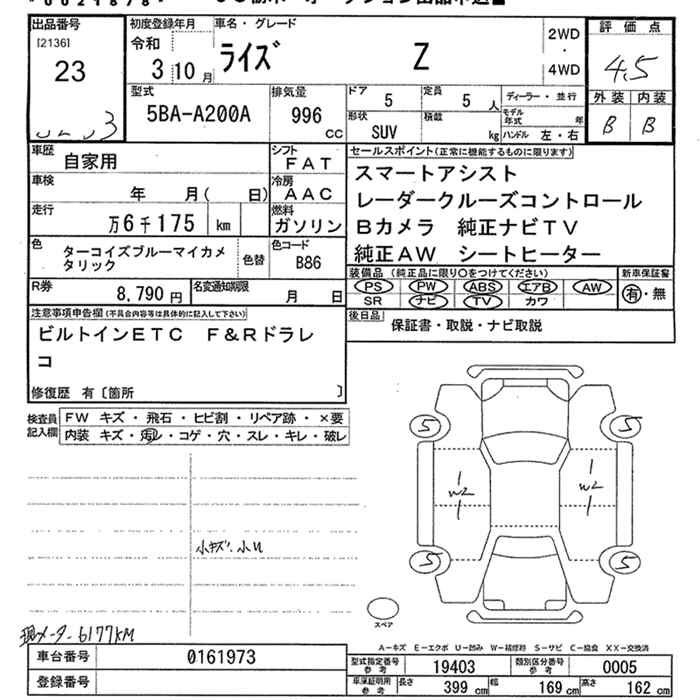 *0021878*
出品番号 初度登録年月 車名・グレード 2WD 評価点
[2136] 令和 ライズ Z ・
23 3 10 月 4WD 4.5
型式 排気量 ドア 5 定員 5 人 ディーラー・並行 外装 内装
5BA-A200A 996 CC 形状 SUV 積載 kg モデル年式 年 B B
ハンドル 左・右
車歴 自家用 シフト FAT セールスポイント(正常に機能するものに限ります)
車検 年 月( 日) 冷房 AAC スマートアシスト
走行 万6千175 km 燃料 ガソリン レーダークルーズコントロール
Bカメラ 純正ナビTV
色 ターコイズブルーマイカメタリック 色替 色コード B86 純正AW シートヒーター
R券 8,790円 名変通知期限 月 日 装備品(純正品に限り○をつけてください) 新車保証書
PS PW ABS エアB AW 有・無
SR ナビ TV カワ
注意事項申告欄(不具合内容等は具体的に記入して下さい) 後日品 保証書・取説・ナビ取説
ビルトインETC F&Rドラレ
コ
修復歴 有〔箇所 〕
検査員記入欄 FW キズ・飛石・ヒビ割・リペア跡・×要
内装 キズ・汚レ・コゲ・穴・スレ・キレ・破レ
5 5
1 1
W2 W2
1 1
小キズ・小U
5 5
スペア
現メーター6177KM
A-キズ E-エクボ U-凹み W-補修跡 S-サビ C-腐食 XX-交換済
車台番号 0161973 型式指定番号 参考 19403 類別区分番号 参考 0005
登録番号 車庫証明用 参考 長さ 399 cm 幅 169 cm 高さ 162 cm